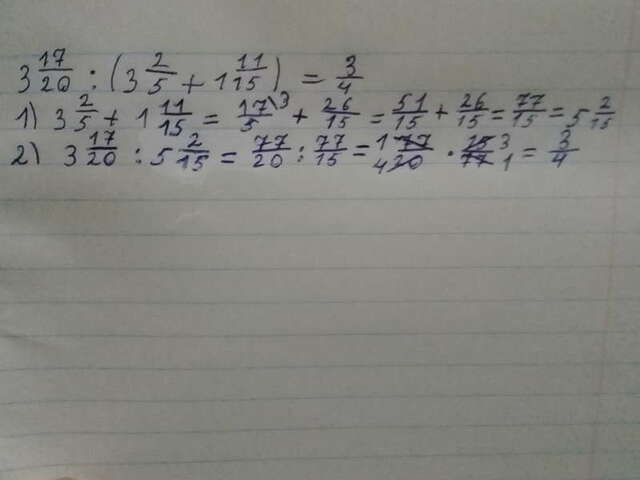 3 17/20 : (3 2/5 + 1 11/15) = 3/4
1) 3 2/5 + 1 11/15 = 17\3/5 + 26/15 = 51/15 + 26/15 = 77/15 = 5 2/15
2) 3 17/20 : 5 2/15 = 77/20 : 77/15 = 1 77/4 20 · 15 3/77 1 = 3/4